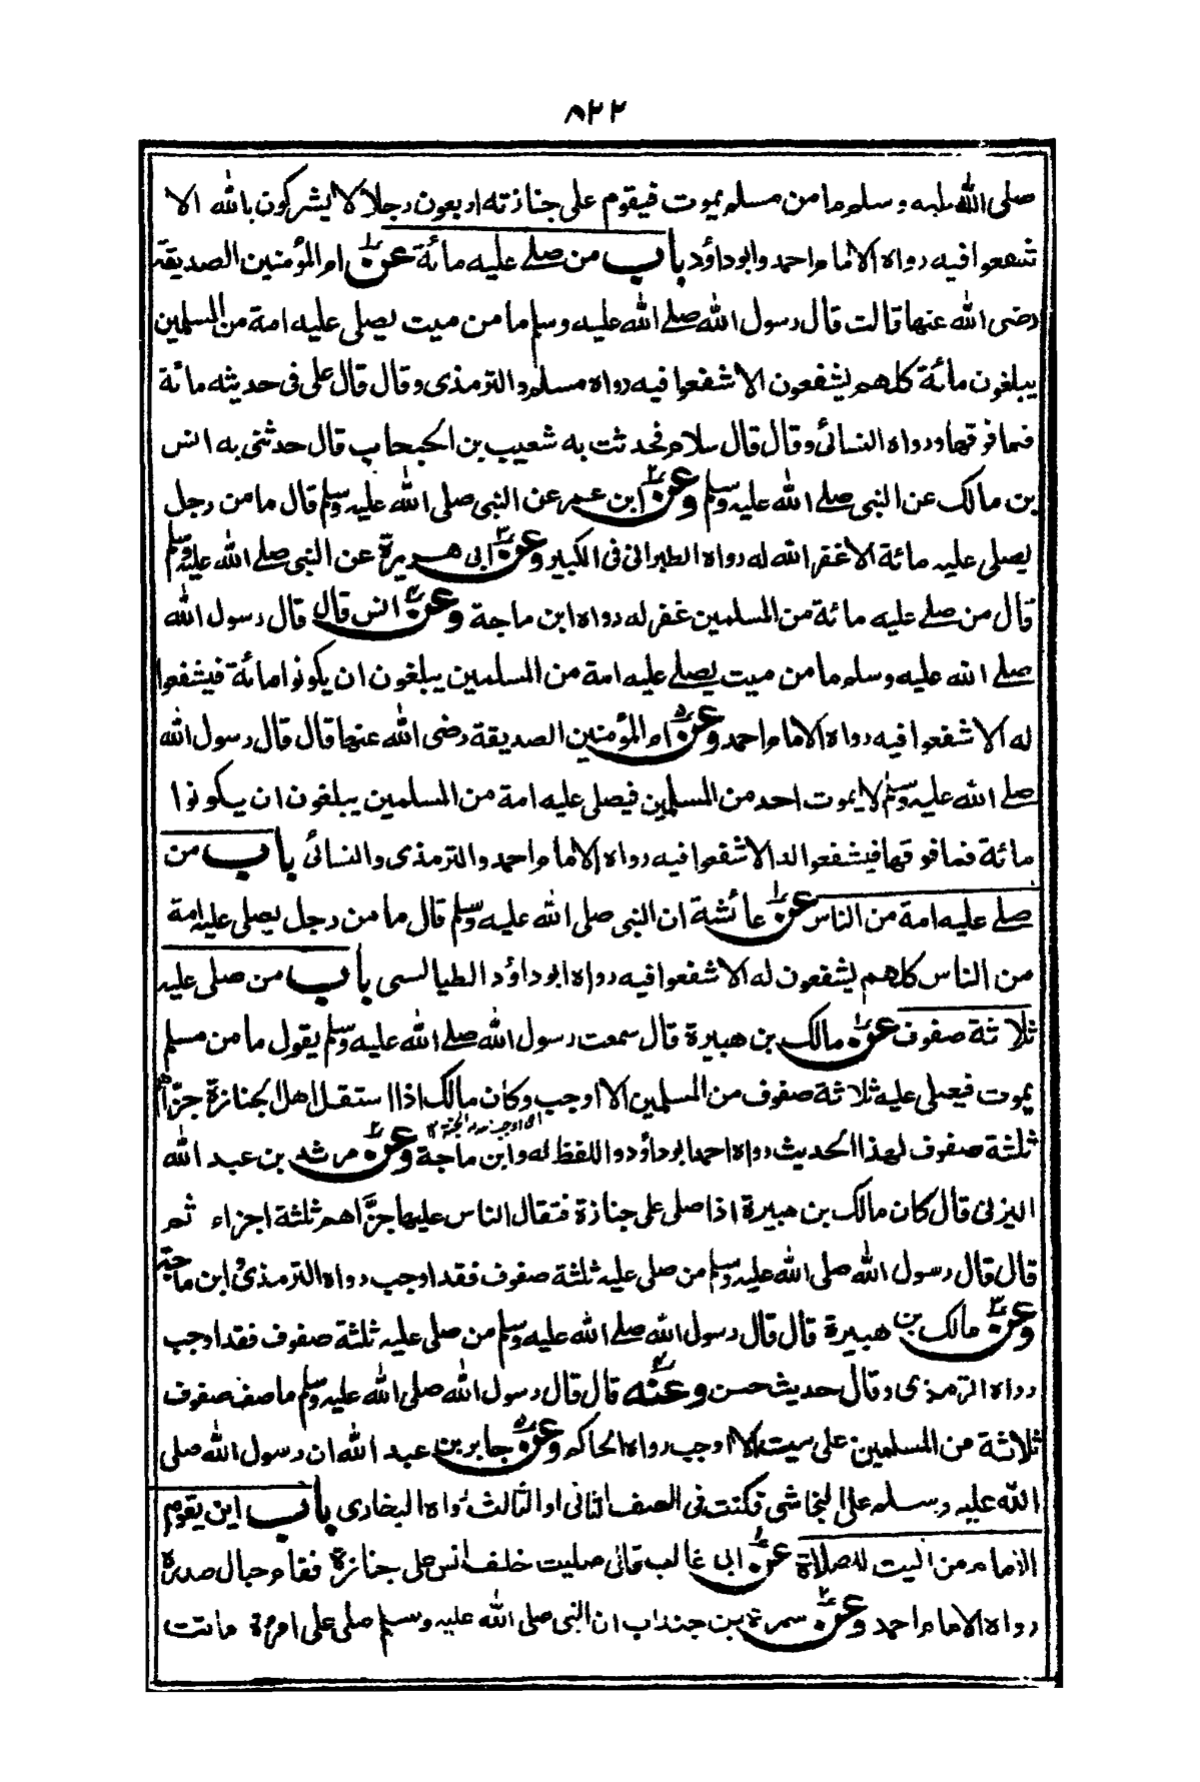 ٨٢٢
صلى الله عليه وسلم ما من مسلم يموت فيقوم على جنازته اربعون رجلا لا يشركون بالله الا
شفعوا فيه رواه الامام احمد وابو داؤد باب من صلے عليه مائة عن ام المؤمنين الصديقة
رضى الله عنها قالت قال رسول الله صلے الله عليه وسلم ما من ميت يصلى عليه امة من المسلمين
يبلغون مائة كلهم يشفعون الا شفعوا فيه رواه مسلم والترمذى وقال قال على فى حديثه مائة
فما فوقها ورواه النسائى وقال قال سلام فحدثت به شعيب بن الحبحاب قال حدثنى به انس
بن مالك عن النبى صلے الله عليه وسلم وعن٢ ابن عمر عن النبى صلى الله عليه وسلم قال ما من رجل
يصلى عليه مائة الا غفر الله له رواه الطبرانى فى الكبير وعن٣ ابى هريرة عن النبى صلے الله عليه وسلم
قال من صلے عليه مائة من المسلمين غفر له رواه ابن ماجة وعن٤ انس قال قال رسول الله
صلے الله عليه وسلم ما من ميت يصلے عليه امة من المسلمين يبلغون ان يكونوا مائة فيشفعوا
له الا شفعوا فيه رواه الامام احمد وعن٥ ام المؤمنين الصديقة رضى الله عنها قال قال رسول الله
صلے الله عليه وسلم لا يموت احد من المسلمين فيصلى عليه امة من المسلمين يبلغون ان يكونوا
مائة فما فوقها فيشفعوا له الا شفعوا فيه رواه الامام احمد والترمذى والنسائى باب من
صلے عليه امة من الناس عن١ عائشة ان النبى صلى الله عليه وسلم قال ما من رجل يصلى عليه امة
من الناس كلهم يشفعون له الا شفعوا فيه رواه ابو داؤد الطيالسى باب من صلى عليه
ثلاثة صفوف عن١ مالك بن هبيرة قال سمعت رسول الله صلے الله عليه وسلم يقول ما من مسلم
يموت فيصلى عليه ثلاثة صفوف من المسلمين الا اوجب وكان مالك اذا استقل اهل الجنازة جزاهم
ثلثة صفوف لهذا الحديث رواه احمد ابو داؤد واللفظ له وابن ماجة وعن٢ مرثد بن عبد الله
اليزنى قال كان مالك بن هبيرة اذا صلى على جنازة فتقال الناس عليها جزّاهم ثلثة اجزاء ثم
قال قال رسول الله صلى الله عليه وسلم من صلى عليه ثلثة صفوف فقد اوجب رواه الترمذى وابن ماجة
وعن٣ مالك بن هبيرة قال قال رسول الله صلے الله عليه وسلم من صلى عليه ثلثة صفوف فقد اوجب
رواه الترمذى وقال حديث حسن وعنه٤ قال قال رسول الله صلى الله عليه وسلم ما صف صفوف
ثلاثة من المسلمين على ميت الا اوجب رواه الحاكم وعن٥ جابر بن عبد الله ان رسول الله صلى
الله عليه وسلم على النجاشى فكنت فى الصف الثانى او الثالث رواه البخارى باب اين يقوم
الامام من الميت للصلاة عن١ ابى غالب قال صليت خلف انس على جنازة فقام حيال صدره
رواه الامام احمد وعن٢ سمرة بن جنداب ان النبى صلى الله عليه وسلم صلى على امرءة ماتت